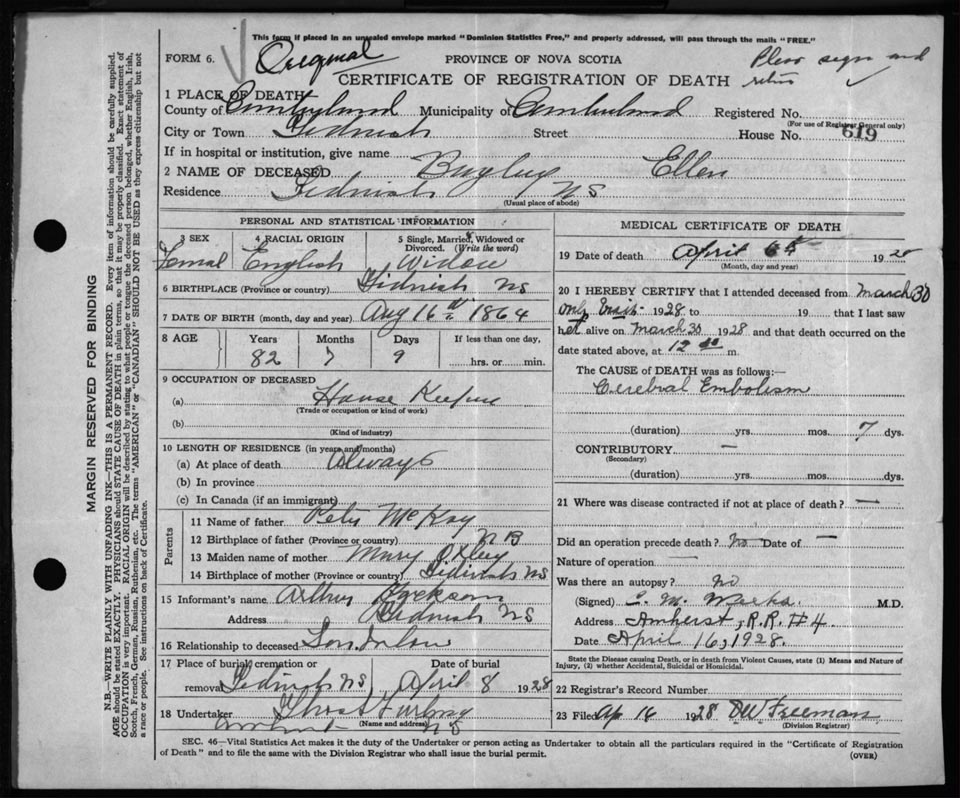 This form if placed in an unsealed envelope marked "Dominion Statistics Free," and properly addressed, will pass through the mails "FREE."
FORM 6. Original PROVINCE OF NOVA SCOTIA Please sign and
CERTIFICATE OF REGISTRATION OF DEATH
1 PLACE OF DEATH
County of Cumberland Municipality of Cumberland Registered No.
(For use of Registrar General only)
City or Town Tidnish Street House No. 619
If in hospital or institution, give name
2 NAME OF DECEASED Bugley Ellen
Residence Tidnish NS
(Usual place of abode)
PERSONAL AND STATISTICAL INFORMATION
3 SEX 4 RACIAL ORIGIN 5 Single, Married, Widowed or Divorced. (Write the word)
Femal English Widow
6 BIRTHPLACE (Province or country) Tidnish NS
7 DATE OF BIRTH (month, day and year) Aug 16th 1864
8 AGE Years Months Days If less than one day,
82 7 9 hrs. or min.
9 OCCUPATION OF DECEASED
(a) House Keeping
(Trade or occupation or kind of work)
(b)
(Kind of industry)
10 LENGTH OF RESIDENCE (in years and months)
(a) At place of death Always
(b) In province
(c) In Canada (if an immigrant)
Parents
11 Name of father Peter McKay
12 Birthplace of father (Province or country) N B
13 Maiden name of mother Mary Oxley
14 Birthplace of mother (Province or country) Tidnish NS
15 Informant's name Arthur Jackson
Address Tidnish NS
16 Relationship to deceased Son inlaw
17 Place of burial, cremation or Date of burial
removal Tidnish NS April 8 1928
18 Undertaker
(Name and address)
Amherst NS
MEDICAL CERTIFICATE OF DEATH
19 Date of death April 6th 1928
(Month, day and year)
20 I HEREBY CERTIFY that I attended deceased from March 30
only visit 1928 to 19 that I last saw
her alive on March 30 1928 and that death occurred on
date stated above, at 12 m.
The CAUSE of DEATH was as follows:—
Cerebral Embolism
(duration) yrs. mos. 7 dys.
CONTRIBUTORY —
(Secondary)
(duration) yrs. mos. dys.
21 Where was disease contracted if not at place of death? —
Did an operation precede death? No Date of —
Nature of operation —
Was there an autopsy? no
(Signed) C. M. M.D.
Address Amherst, R.R. #4
Date April 16, 1928.
State the Disease causing Death, or in death from Violent Causes, state (1) Means and Nature of
Injury, (2) whether Accidental, Suicidal or Homicidal.
22 Registrar's Record Number
23 Filed Ap 16 1928 DW Freeman
(Division Registrar)
SEC. 46—Vital Statistics Act makes it the duty of the Undertaker or person acting as Undertaker to obtain all the particulars required in the "Certificate of Registration
of Death" and to file the same with the Division Registrar who shall issue the burial permit. (OVER)
MARGIN RESERVED FOR BINDING
N.B.—WRITE PLAINLY WITH UNFADING INK—THIS IS A PERMANENT RECORD. Every item of information should be carefully supplied.
AGE should be stated EXACTLY. PHYSICIANS should STATE CAUSE OF DEATH in plain terms, so that it may be properly classified. Exact statement of
OCCUPATION is very important. RACIAL ORIGIN will be described by stating to what people or tongue the deceased person belonged, whether English, Irish,
Scotch, French, German, Russian, Ruthenian, etc. The terms "AMERICAN" or "CANADIAN" SHOULD NOT BE USED as they express citizenship but not
a race or people. See instructions on back of Certificate.